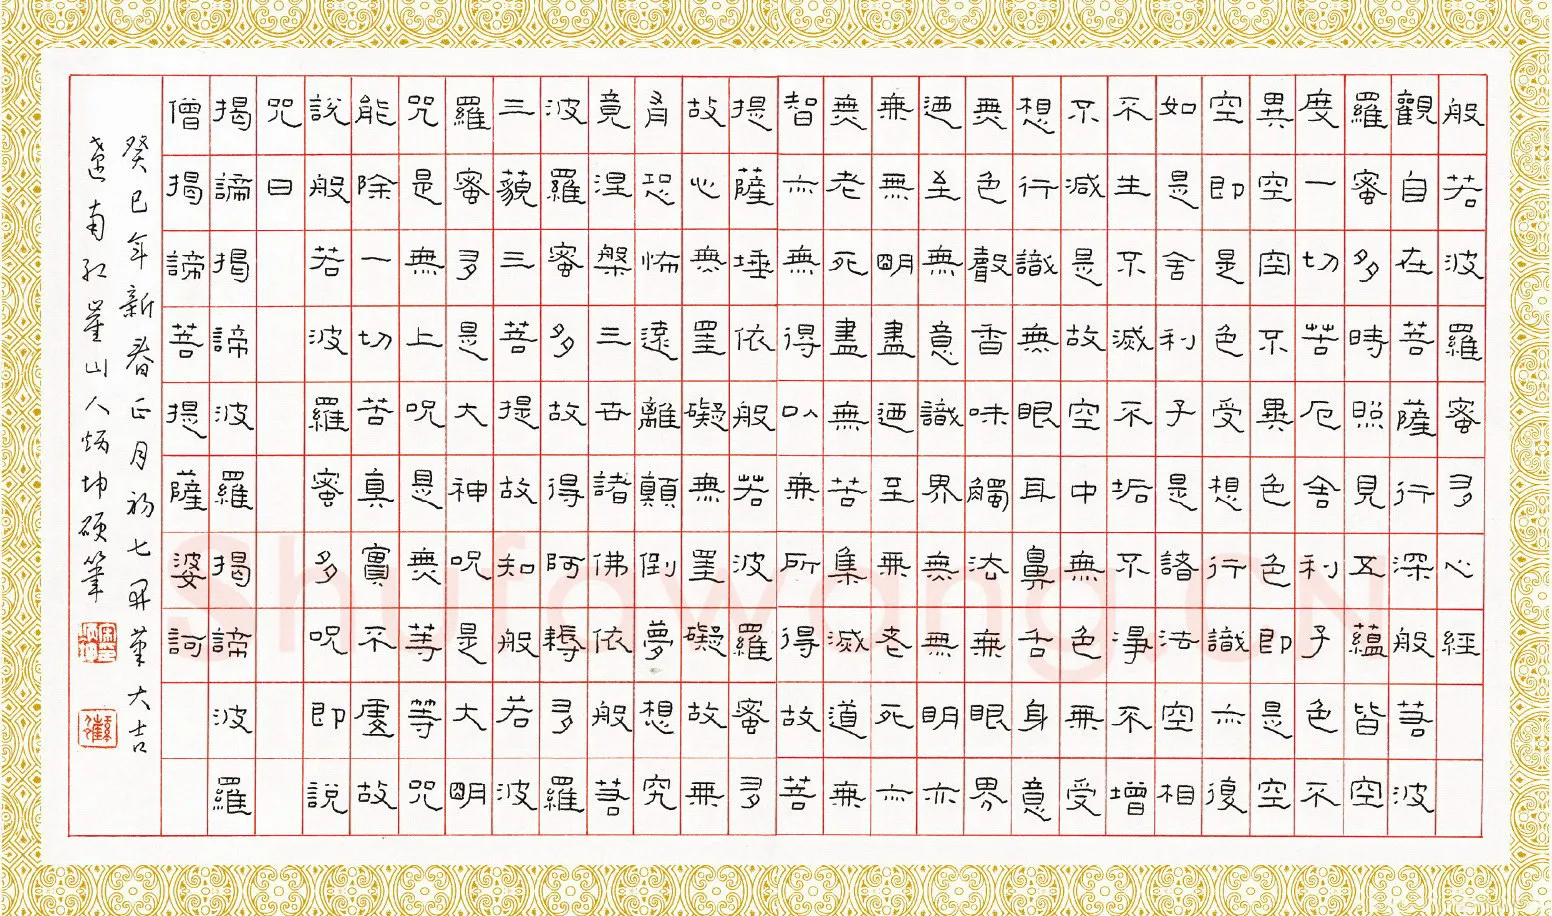 般若波羅蜜多心經
觀自在菩薩行深般若波
羅蜜多時照見五蘊皆空
度一切苦厄舍利子色不
異空空不異色色即是空
空即是色受想行識亦復
如是舍利子是諸法空相
不生不滅不垢不淨不增
不減是故空中無色無受
想行識無眼耳鼻舌身意
無色聲香味觸法無眼界
迺至無意識界無無明亦
無無明盡迺至無老死亦
無老死盡無苦集滅道無
智亦無得以無所得故菩
提薩埵依般若波羅蜜多
故心無罣礙無罣礙故無
有恐怖遠離顛倒夢想究
竟涅槃三世諸佛依般若
波羅蜜多故得阿耨多羅
三藐三菩提故知般若波
羅蜜多是大神咒是大明
咒是無上咒是無等等咒
能除一切苦真實不虛故
說般若波羅蜜多咒即說
咒曰
揭諦揭諦波羅揭諦波羅
僧揭諦菩提薩婆訶
癸巳年新春正月初七開筆大吉
遼南紅山人炳坤硬筆
Shufawang.CN